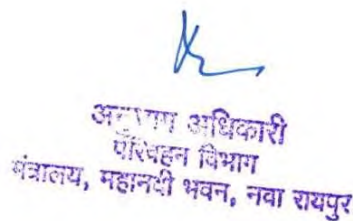 अनुभाग अधिकारी
परिवहन विभाग
मंत्रालय, महानदी भवन, नवा रायपुर